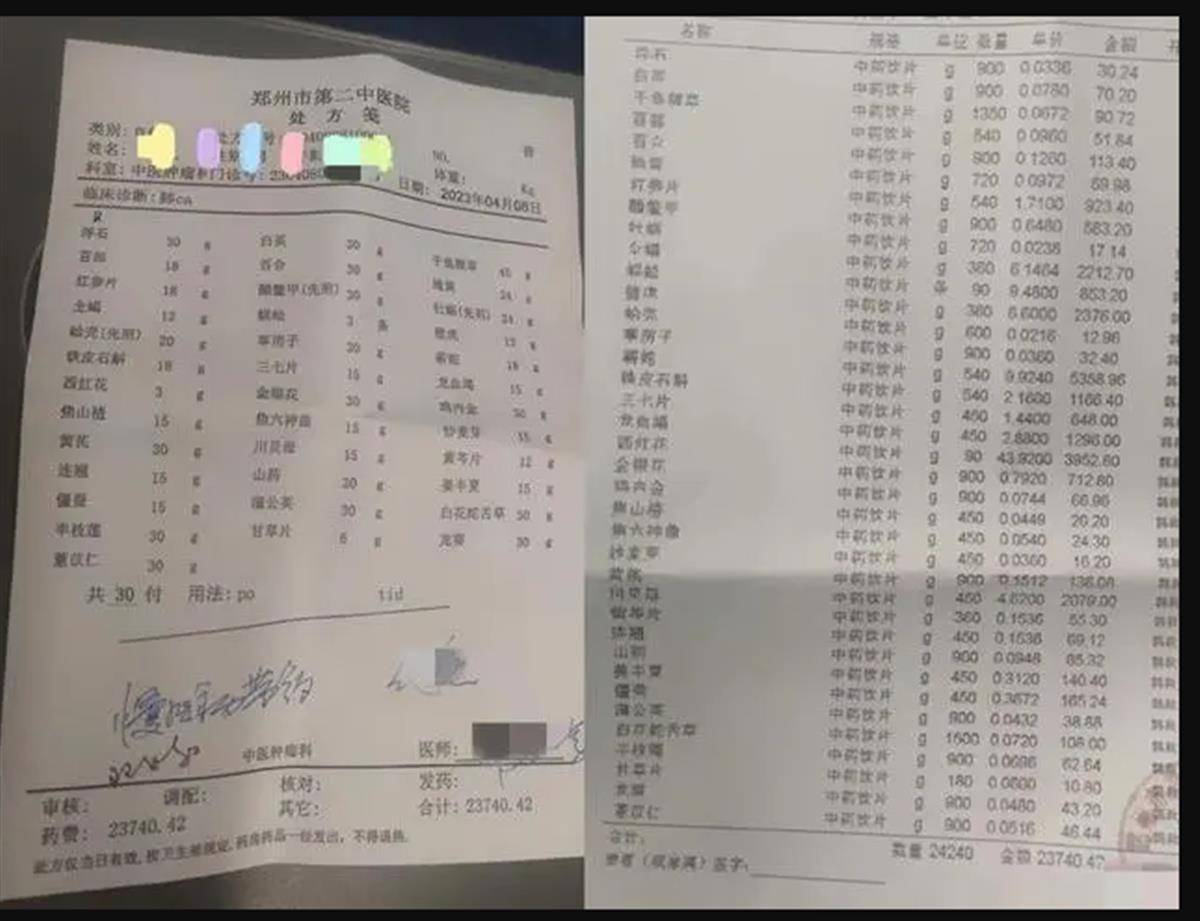 郑州市第二中医院
处方笺
类别:
姓名:
NO.
科室: 中医肿瘤科门诊
体重: Kg
日期: 2023年04月08日
临床诊断: 肺ca
R
浮石 30 g 白英 30 g 干鱼腥草 45 g
百部 18 g 百合 30 g 地黄 24 g
红参片 18 g 醋鳖甲(先煎) 30 g 牡蛎(先煎) 24 g
全蝎 12 g 蜈蚣 3 条 12 g
蛤壳(先煎) 20 g 葶苈子 20 g 蕲蛇 18 g
铁皮石斛 18 g 三七片 15 g 龙血竭 15 g
西红花 3 g 金银花 30 g 鸡内金 30 g
焦山楂 15 g 焦六神曲 15 g 炒麦芽 15 g
黄芪 30 g 川贝母 15 g 黄芩片 12 g
连翘 15 g 山药 30 g 姜半夏 15 g
僵蚕 15 g 蒲公英 30 g 白花蛇舌草 50 g
半枝莲 30 g 甘草片 6 g 龙葵 30 g
薏苡仁 30 g
共 30 付 用法: po tid
中医肿瘤科
医师:
审核: 调配: 核对: 发药:
药费: 23740.42 其它: 合计: 23740.42
此方仅当日有效, 按卫生部规定, 药房药品一经发出, 不得退换。
名称 规格 单位 数量 单价 金额
浮石 中药饮片 g 900 0.0336 30.24
白英 中药饮片 g 900 0.0780 70.20
干鱼腥草 中药饮片 g 1350 0.0672 90.72
百部 中药饮片 g 540 0.0960 51.84
百合 中药饮片 g 900 0.1260 113.40
地黄 中药饮片 g 720 0.0972 69.98
红参片 中药饮片 g 540 1.7100 923.40
醋鳖甲 中药饮片 g 900 0.6480 583.20
牡蛎 中药饮片 g 720 0.0238 17.14
全蝎 中药饮片 g 360 6.1464 2212.70
蜈蚣 中药饮片 条 90 9.4800 853.20
中药饮片 g 360 6.6000 2376.00
蛤壳 中药饮片 g 600 0.0216 12.96
葶苈子 中药饮片 g 900 0.0360 32.40
蕲蛇 中药饮片 g 540 9.9240 5358.96
铁皮石斛 中药饮片 g 540 2.1600 1166.40
三七片 中药饮片 g 450 1.4400 648.00
龙血竭 中药饮片 g 450 2.8800 1296.00
西红花 中药饮片 g 90 43.9200 3952.80
金银花 中药饮片 g 900 0.7920 712.80
鸡内金 中药饮片 g 900 0.0744 66.96
焦山楂 中药饮片 g 450 0.0449 20.20
焦六神曲 中药饮片 g 450 0.0540 24.30
炒麦芽 中药饮片 g 450 0.0360 16.20
黄芪 中药饮片 g 900 0.1512 136.08
川贝母 中药饮片 g 450 4.6200 2079.00
黄芩片 中药饮片 g 360 0.1536 55.30
连翘 中药饮片 g 450 0.1536 69.12
山药 中药饮片 g 900 0.0948 85.32
姜半夏 中药饮片 g 450 0.3120 140.40
僵蚕 中药饮片 g 450 0.3672 165.24
蒲公英 中药饮片 g 900 0.0432 38.88
白花蛇舌草 中药饮片 g 1500 0.0720 108.00
半枝莲 中药饮片 g 900 0.0696 62.64
甘草片 中药饮片 g 180 0.0600 10.80
龙葵 中药饮片 g 900 0.0480 43.20
薏苡仁 中药饮片 g 900 0.0516 46.44
合计: 数量 24240 金额 23740.42
患者(或家属)签字: